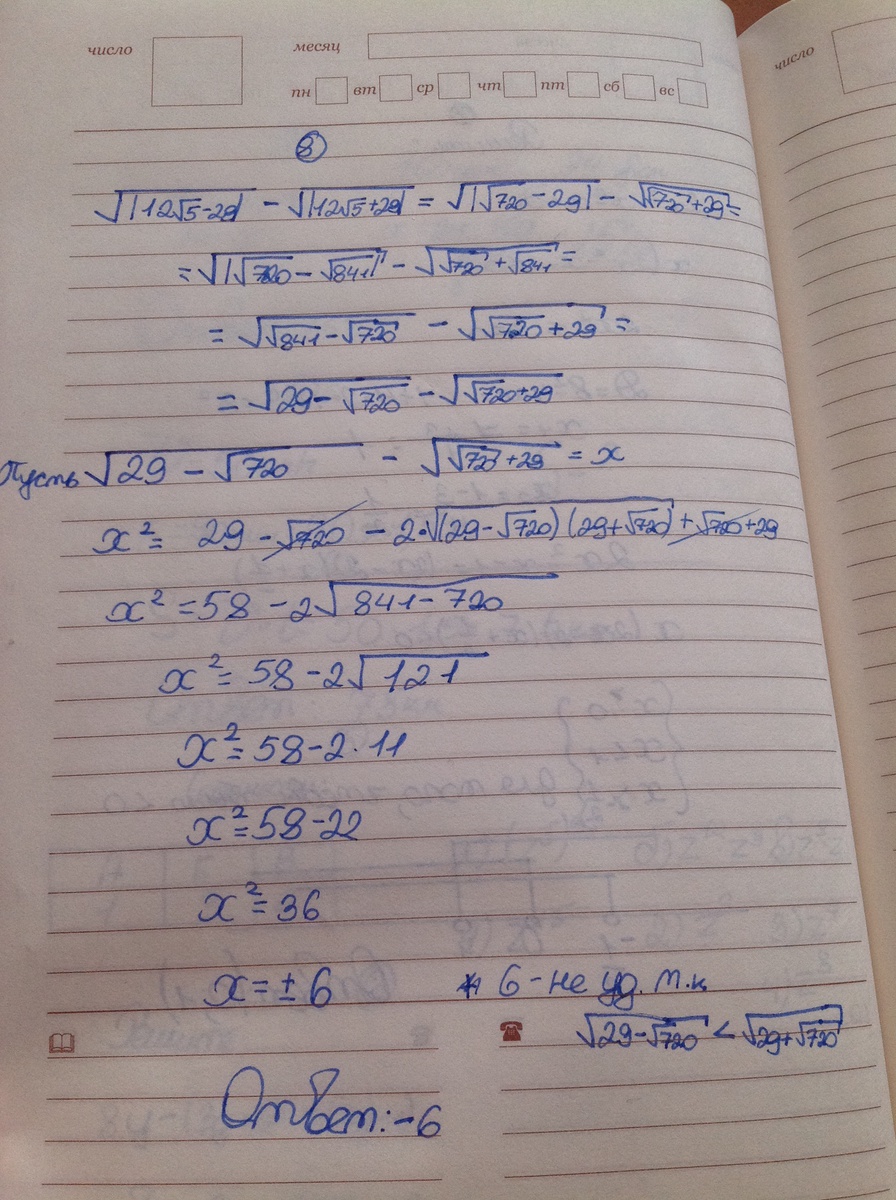 число месяц
пн вт ср чт пт сб вс
число
8
√|12√5-29| - √|12√5+29| = √|√720 - 29| - √√720+29 =
= √|√720 - √841| - √√720+√841 =
= √√841-√720 - √√720+29 =
= √29-√720 - √√720+29
Пусть √29-√720 - √√720+29 = x
x² = 29 - √720 - 2·√(29-√720)(29+√720) + √720+29
x² = 58 - 2√841-720
x² = 58 - 2√121
x² = 58 - 2·11
x² = 58 - 22
x² = 36
x = ± 6 6 - не уд. т.к
√29-√720 < √29+√720
Ответ: -6